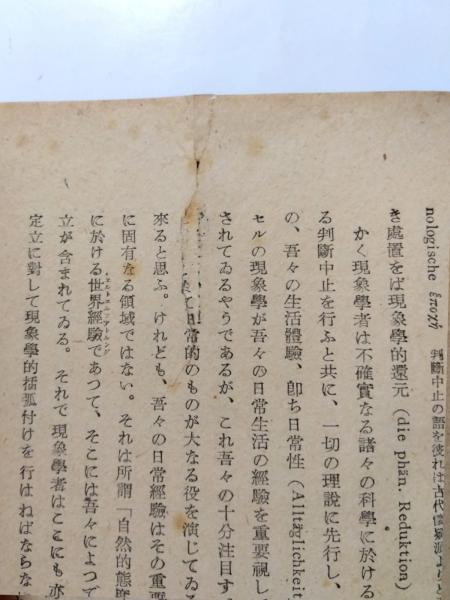 nologische ἐποχή 判斷中止の語を彼れは古代懷疑派よりと
き處置をば現象學的還元 (die phän. Reduktion)
かく現象學者は不確實なる諸々の科學に於ける
る判斷中止を行ふと共に、一切の理說に先行し、
の、吾々の生活體驗、卽ち日常性 (Alltäglichkeit
セルの現象學が吾々の日常生活の經驗を重要視し
されてゐるやうであるが、これ吾々の十分注目す
日常的のものが大なる役を演じてゐる
來ると思ふ。けれども、吾々の日常經驗はその重要
に固有なる領域ではない。それは所謂「自然的態度
に於ける世界經驗であつて、そこには吾々によつて
立が含まれてゐる。それで現象學者はここにも亦
定立に對して現象學的括弧付けを行はねばならな